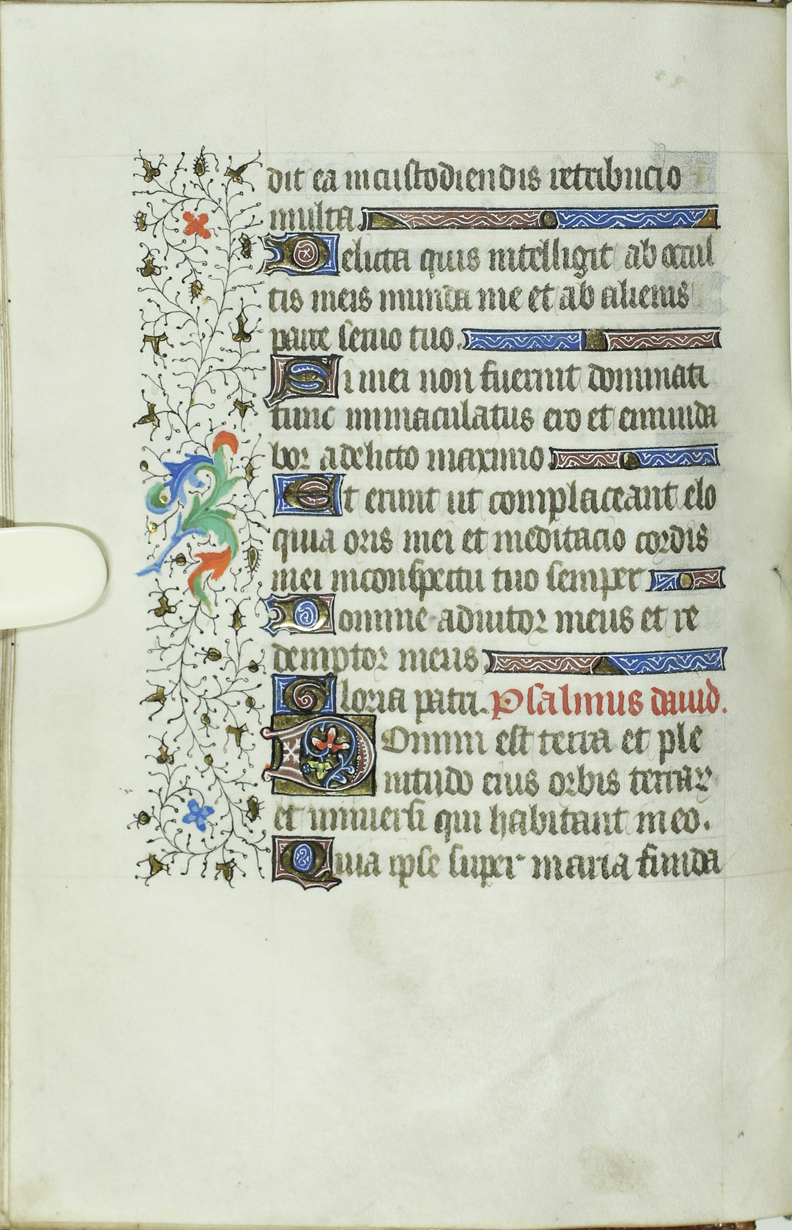 dit ea in custodiendis retribucio
multa.
Delicta quis intelligit ab occul
tis meis munda me et ab alienis
parce seruo tuo.
Si mei non fuerint dominati
tunc immaculatus ero et emunda
bor a delicto maximo
Et erunt ut complaceant elo
quia oris mei et meditacio cordis
mei in conspectu tuo semper
Domine adiutor meus et re
demptor meus
Gloria patri. Psalmus dauid.
Domini est terra et ple
nitudo eius orbis terrar
et uniuersi qui habitant in eo.
Quia ipse super maria funda